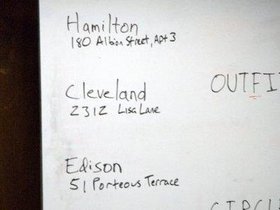 Hamilton
180 Albion Street, Apt 3
Cleveland
2312 Lisa Lane
OUTFI
Edison
51 Porteous Terrace
CIRCL